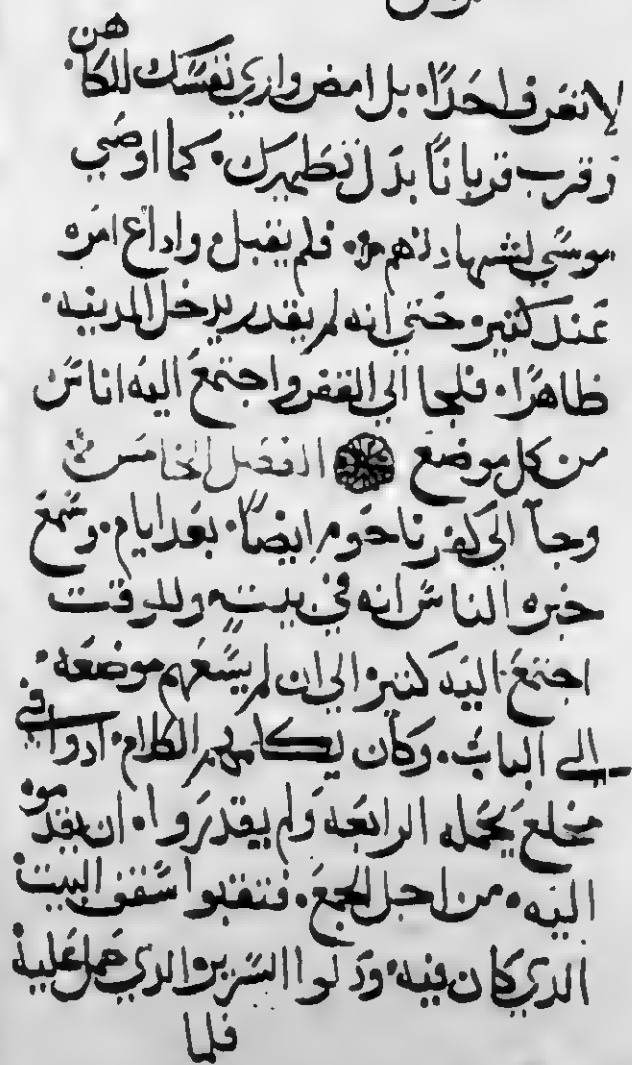 لا تعرف احدًا. بل امض واري نفسك للكاهن
وقرب قربانًا بدل تطهيرك. كما اوصي
موسي لشهادتهم. فلم يقبل واداع امره
عند كثير حتي انه لم يقدر يدخل المدينه.
ظاهرًا. فلجا الي القفر واجتمع اليه اناس
من كل موضع الفصل الخامس
وجآ الي كفرناحوم ايضًا. بعد ايام. وسمع
خبره الناس انه في بيت وللوقت
اجتمع اليه كثير الي ان لم يسعهم موضعه.
الي الباب. وكان يكلمهم الكلام. ادوا في
مخلع يحمله الرابعه ولم يقدروا. ان يقدموه
اليه. من اجل الجمع. فنقبوا سقف البيت
الدي كان فيه. ودلوا السرير الدي حمل عليه
فلما